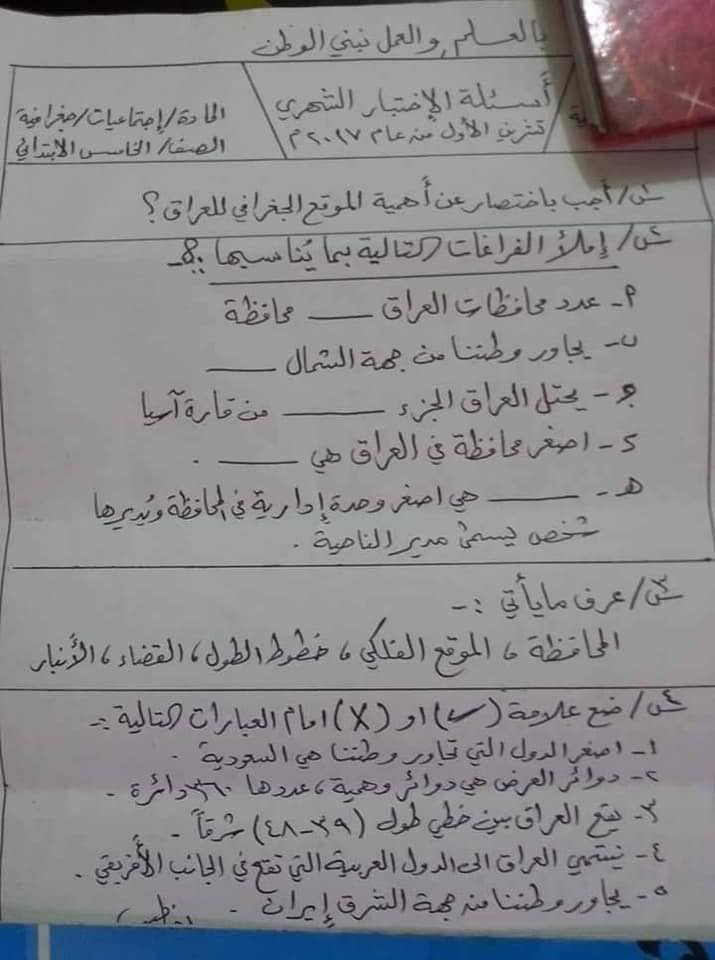 بالعلم والعمل نبني الوطن
أسئلة الإختبار الشهري
تشرين الأول من عام ٢٠١٧ م
المادة/إجتماعيات/جغرافية
الصف/الخامس الابتدائي
س١/أجب باختصار عن أهمية الموقع الجغرافي للعراق؟
س٢/إملأ الفراغات التالية بما يُناسبها :-
أ- عدد محافظات العراق ___ محافظة
ب- يجاور وطننا من جهة الشمال ___
ج- يحتل العراق الجزء ___ من قارة آسيا
د- اصغر محافظة في العراق هي ___ .
هـ- ___ هي اصغر وحدة إدارية في المحافظة ويُديرها
شخص يسمى مدير الناحية .
س٣/عرف مايأتي :-
المحافظة ، الموقع الفلكي ، خطوط الطول ، القضاء ، الأنبار
س٤/ضع علامة (✓) او (X) امام العبارات التالية :-
١- اصغر الدول التي تجاور وطننا هي السعودية .
٢- دوائر العرض هي دوائر وهمية ، عددها ٣٦٠ دائرة .
٣- يقع العراق بين خطي طول (٣٩-٤٨) شرقاً .
٤- ينتمي العراق الى الدول العربية التي تقع في الجانب الأفريقي .
٥- يجاور وطننا من جهة الشرق إيران .